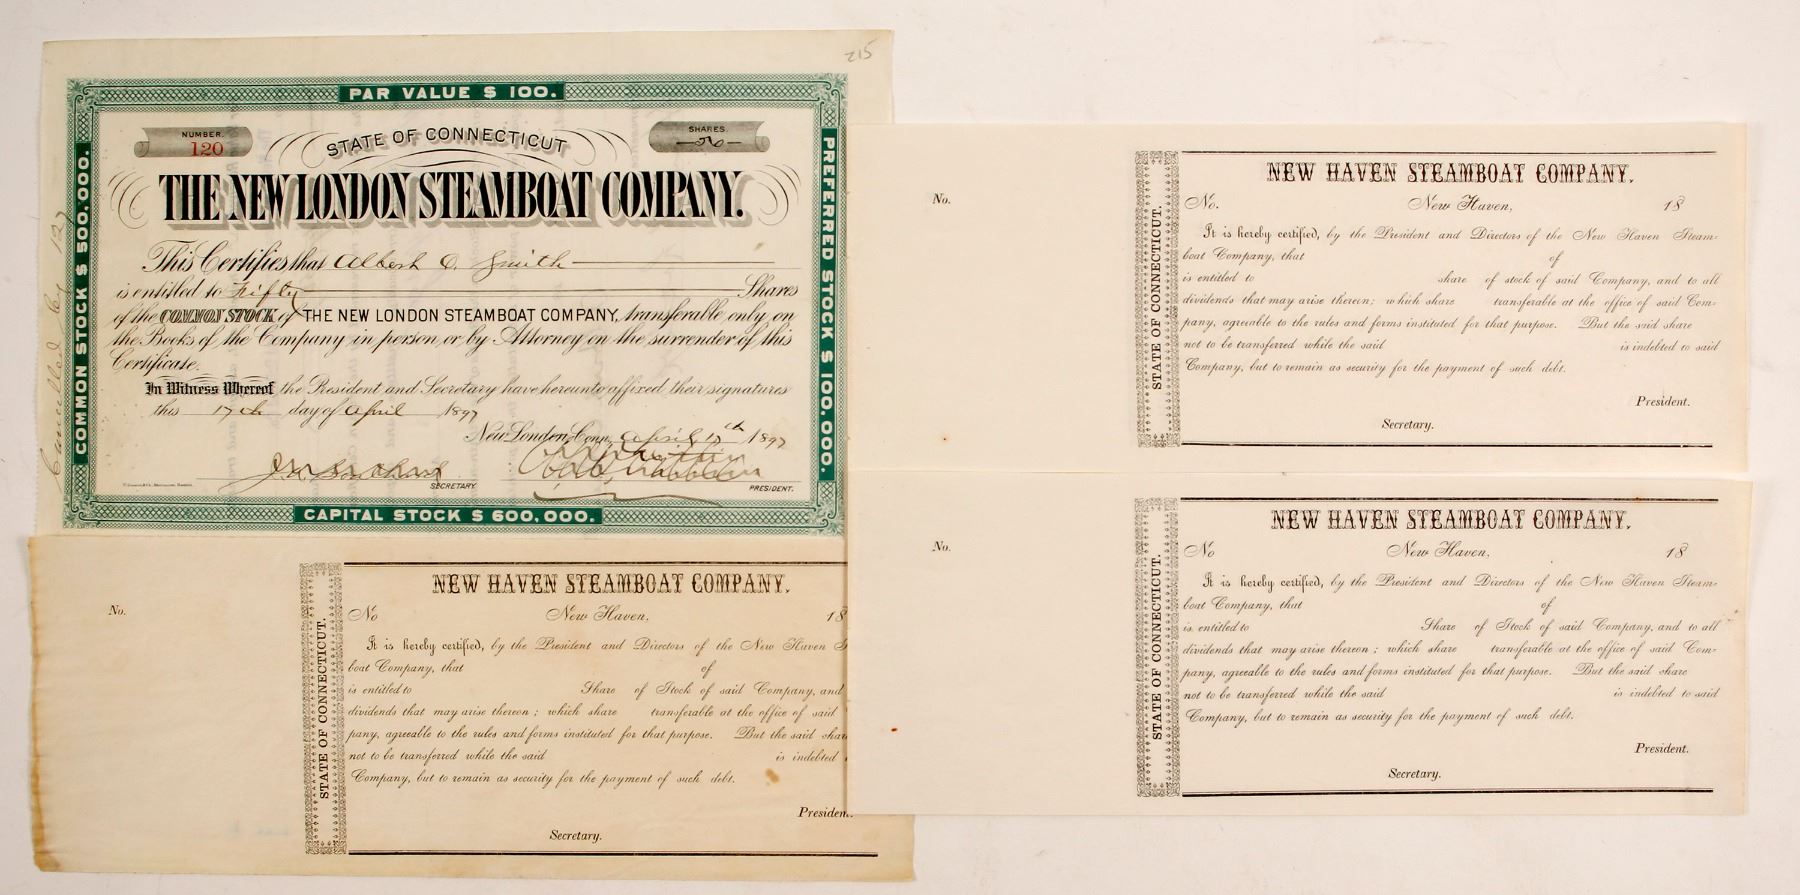 215
PAR VALUE $ 100.
COMMON STOCK $ 500,000.
PREFERRED STOCK $ 100,000.
CAPITAL STOCK $ 600,000.
Cancelled by 127
NUMBER.
120
STATE OF CONNECTICUT
SHARES.
—50—
THE NEW LONDON STEAMBOAT COMPANY.
This Certifies that Albert O. Smith
is entitled to Fifty Shares
of the COMMON STOCK of THE NEW LONDON STEAMBOAT COMPANY, transferable only on
the Books of the Company in person or by Attorney on the surrender of this
Certificate.
In Witness Whereof the President and Secretary have hereunto affixed their signatures
this 17th day of April 1897
New London, Conn. April 17th 1897
SECRETARY.
PRESIDENT.
No.
STATE OF CONNECTICUT.
NEW HAVEN STEAMBOAT COMPANY.
No New Haven, 18
It is hereby certified, by the President and Directors of the New Haven S
boat Company, that of
is entitled to Share of Stock of said Company, and
dividends that may arise thereon; which share transferable at the office of said
pany, agreeable to the rules and forms instituted for that purpose. But the said shar
not to be transferred while the said is indebted
Company, but to remain as security for the payment of such debt.
President.
Secretary.
No.
STATE OF CONNECTICUT.
NEW HAVEN STEAMBOAT COMPANY.
No. New Haven, 18
It is hereby certified, by the President and Directors of the New Haven Steam-
boat Company, that of
is entitled to share of stock of said Company, and to all
dividends that may arise therein; which share transferable at the office of said Com-
pany, agreeable to the rules and forms instituted for that purpose. But the said share
not to be transferred while the said is indebted to said
Company, but to remain as security for the payment of such debt.
President.
Secretary.
No.
STATE OF CONNECTICUT.
NEW HAVEN STEAMBOAT COMPANY.
No New Haven, 18
It is hereby certified, by the President and Directors of the New Haven Steam-
boat Company, that of
is entitled to Share of Stock of said Company, and to all
dividends that may arise thereon; which share transferable at the office of said Com-
pany, agreeable to the rules and forms instituted for that purpose. But the said share
not to be transferred while the said is indebted to said
Company, but to remain as security for the payment of such debt.
President.
Secretary.